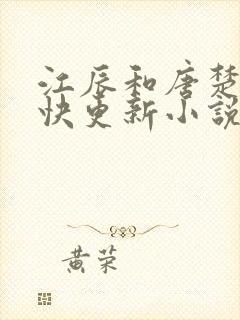 江辰和唐楚
快更新小說
黃荣